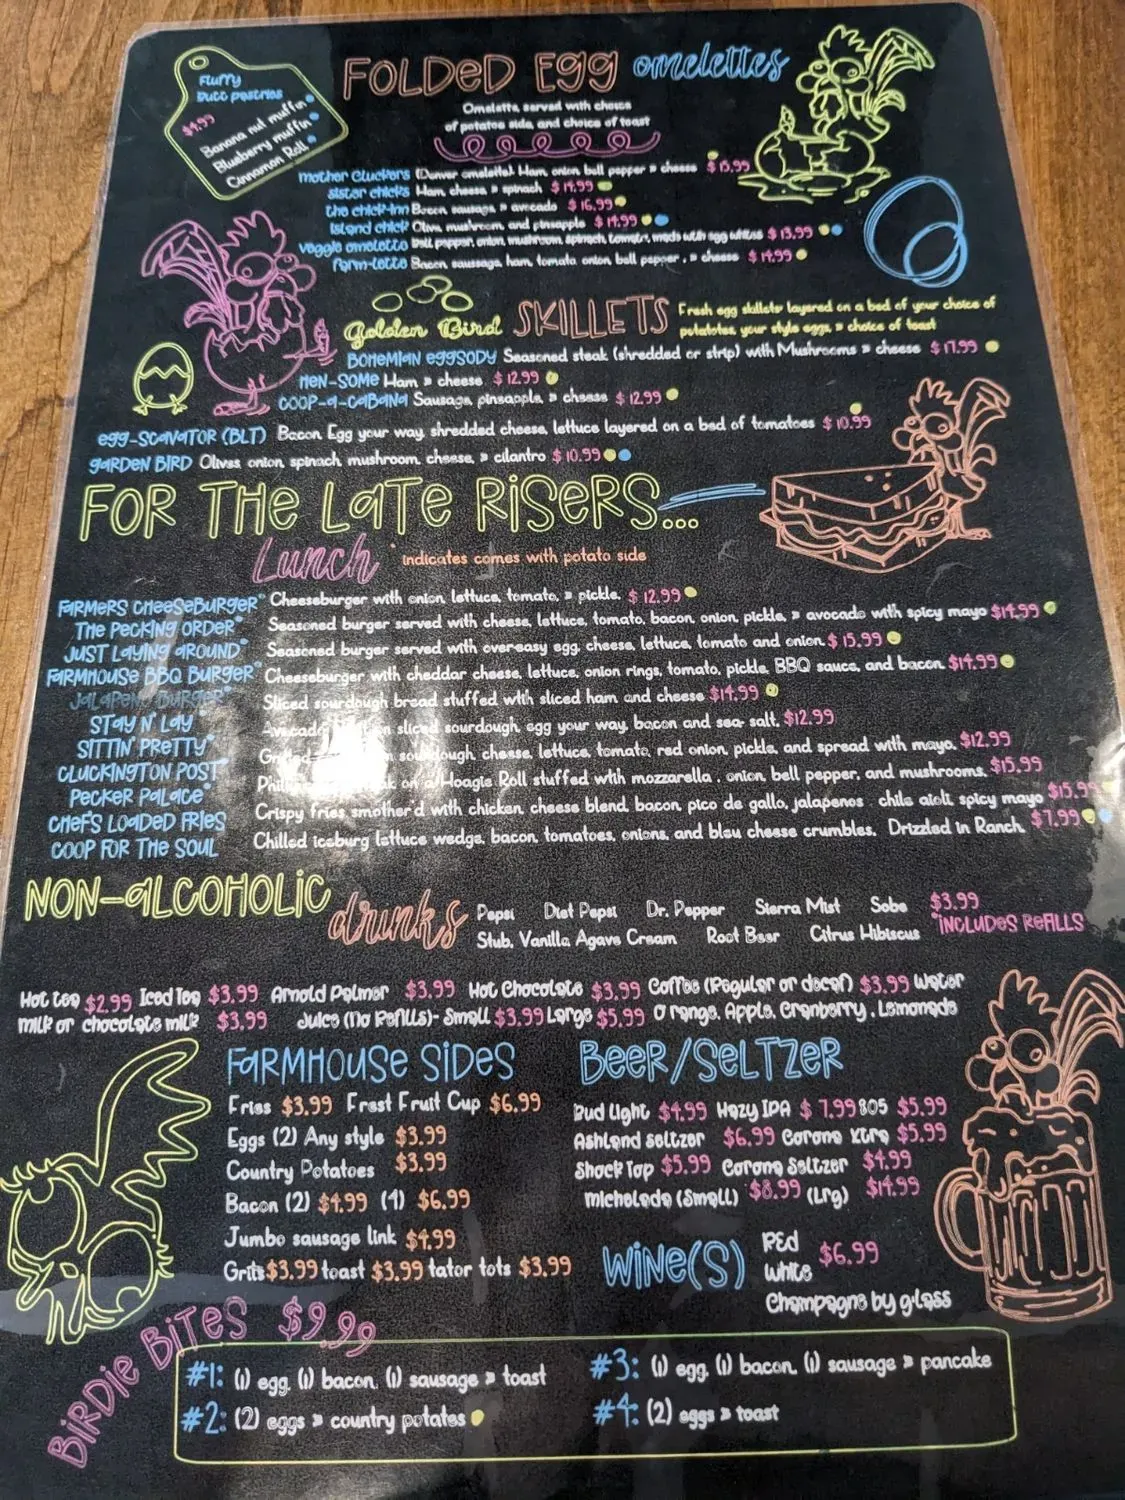 Fluffy
Butt pastries
$4.99
Banana nut muffin
Blueberry muffin
Cinnamon Roll
FOLDED EGG omelettes
Omelette, served with choice
of potatoe side, and choice of toast
mother Cluckers (Denver omelette) Ham, onion, bell pepper & cheese $15.99
sister chicks Ham, cheese, & spinach $14.99
the chick-inn Bacon, sausage, & avocado $16.99
Island chick Olive, mushroom, and pineapple $14.99
veggie omelette Bell pepper, onion, mushroom, spinach, tomato, made with egg whites $13.99
Farm-lette Bacon, saussage, ham, tomato, onion, bell pepper, & cheese $14.99
Golden Bird SKILLETS Fresh egg skillets layered on a bed of your choice of
potatotes, your style eggs, & choice of toast
BOHEMIAN EGGSODY Seasoned steak (shredded or strip) with Mushrooms & cheese $17.99
HEN-SOME Ham & cheese $12.99
COOP-a-CABANA Sausage, pineapple, & cheese $12.99
egg-scavator (BLT) Bacon, Egg your way, shredded cheese, lettuce layered on a bed of tomatoes $10.99
garden bird Olives, onion, spinach, mushroom, cheese, & cilantro $10.99
FOR THE LATE RISERS...
Lunch *indicates comes with potato side
FARMERS CHEESEBURGER* Cheeseburger with onion, lettuce, tomato, & pickle. $12.99
THE PECKING ORDER* Seasoned burger served with cheese, lettuce, tomato, bacon, onion, pickle, & avocado with spicy mayo $14.99
JUST LAYING AROUND* Seasoned burger served with overeasy egg, cheese, lettuce, tomato and onion. $15.99
FARMHOUSE BBQ BURGER* Cheeseburger with cheddar cheese, lettuce, onion rings, tomato, pickle, BBQ sauce, and bacon. $14.99
JALAPENO BURGER* Sliced sourdough bread stuffed with sliced ham and cheese $14.99
STAY N' LAY Avocado sliced sourdough, egg your way, bacon and sea salt. $12.99
SITTIN' PRETTY* sourdough, cheese, lettuce, tomato, red onion, pickle, and spread with mayo. $12.99
CLUCKINGTON POST* on a Hoagie Roll stuffed with mozzarella, onion, bell pepper, and mushrooms. $15.99
PECKER PALACE* Crispy fries smother'd with chicken, cheese blend, bacon, pico de gallo, jalapenos, chile aioli, spicy mayo $15.99
CHEFS LOADED FRIES Chilled iceburg lettuce wedge, bacon, tomatoes, onions, and bleu cheese crumbles. Drizzled in Ranch. $7.99
COOP FOR THE SOUL
NON-ALCOHOLIC drinks
Pepsi Diet Pepsi Dr. Pepper Sierra Mist Sobe $3.99
Stub. Vanilla Agave Cream Root Beer Citrus Hibiscus *INCLUDES REFILLS
Hot tea $2.99 Iced Tea $3.99 Arnold Palmer $3.99 Hot Chocolate $3.99 Coffee (Regular or decaf) $3.99 Water
milk or chocolate milk $3.99 Juice (No Refills)- Small $3.99 Large $5.99 Orange, Apple, Cranberry, Lemonade
FARMHOUSE SIDES
Fries $3.99 Frest Fruit Cup $6.99
Eggs (2) Any style $3.99
Country Potatoes $3.99
Bacon (2) $4.99 (4) $6.99
Jumbo sausage link $4.99
Grits $3.99 toast $3.99 tator tots $3.99
BEER/SELTZER
Bud Light $4.99 Hazy IPA $7.99 805 $5.99
Ashland seltzer $6.99 Corona xtra $5.99
Shock Top $5.99 Corona Seltzer $4.99
michelada (Small) $8.99 (Lrg) $14.99
WINE(S)
REd
White
$6.99
Champagne by glass
BIRDIE BITES $9.99
#1: (1) egg, (1) bacon, (1) sausage & toast
#2: (2) eggs & country potates
#3: (1) egg, (1) bacon, (1) sausage & pancake
#4: (2) eggs & toast